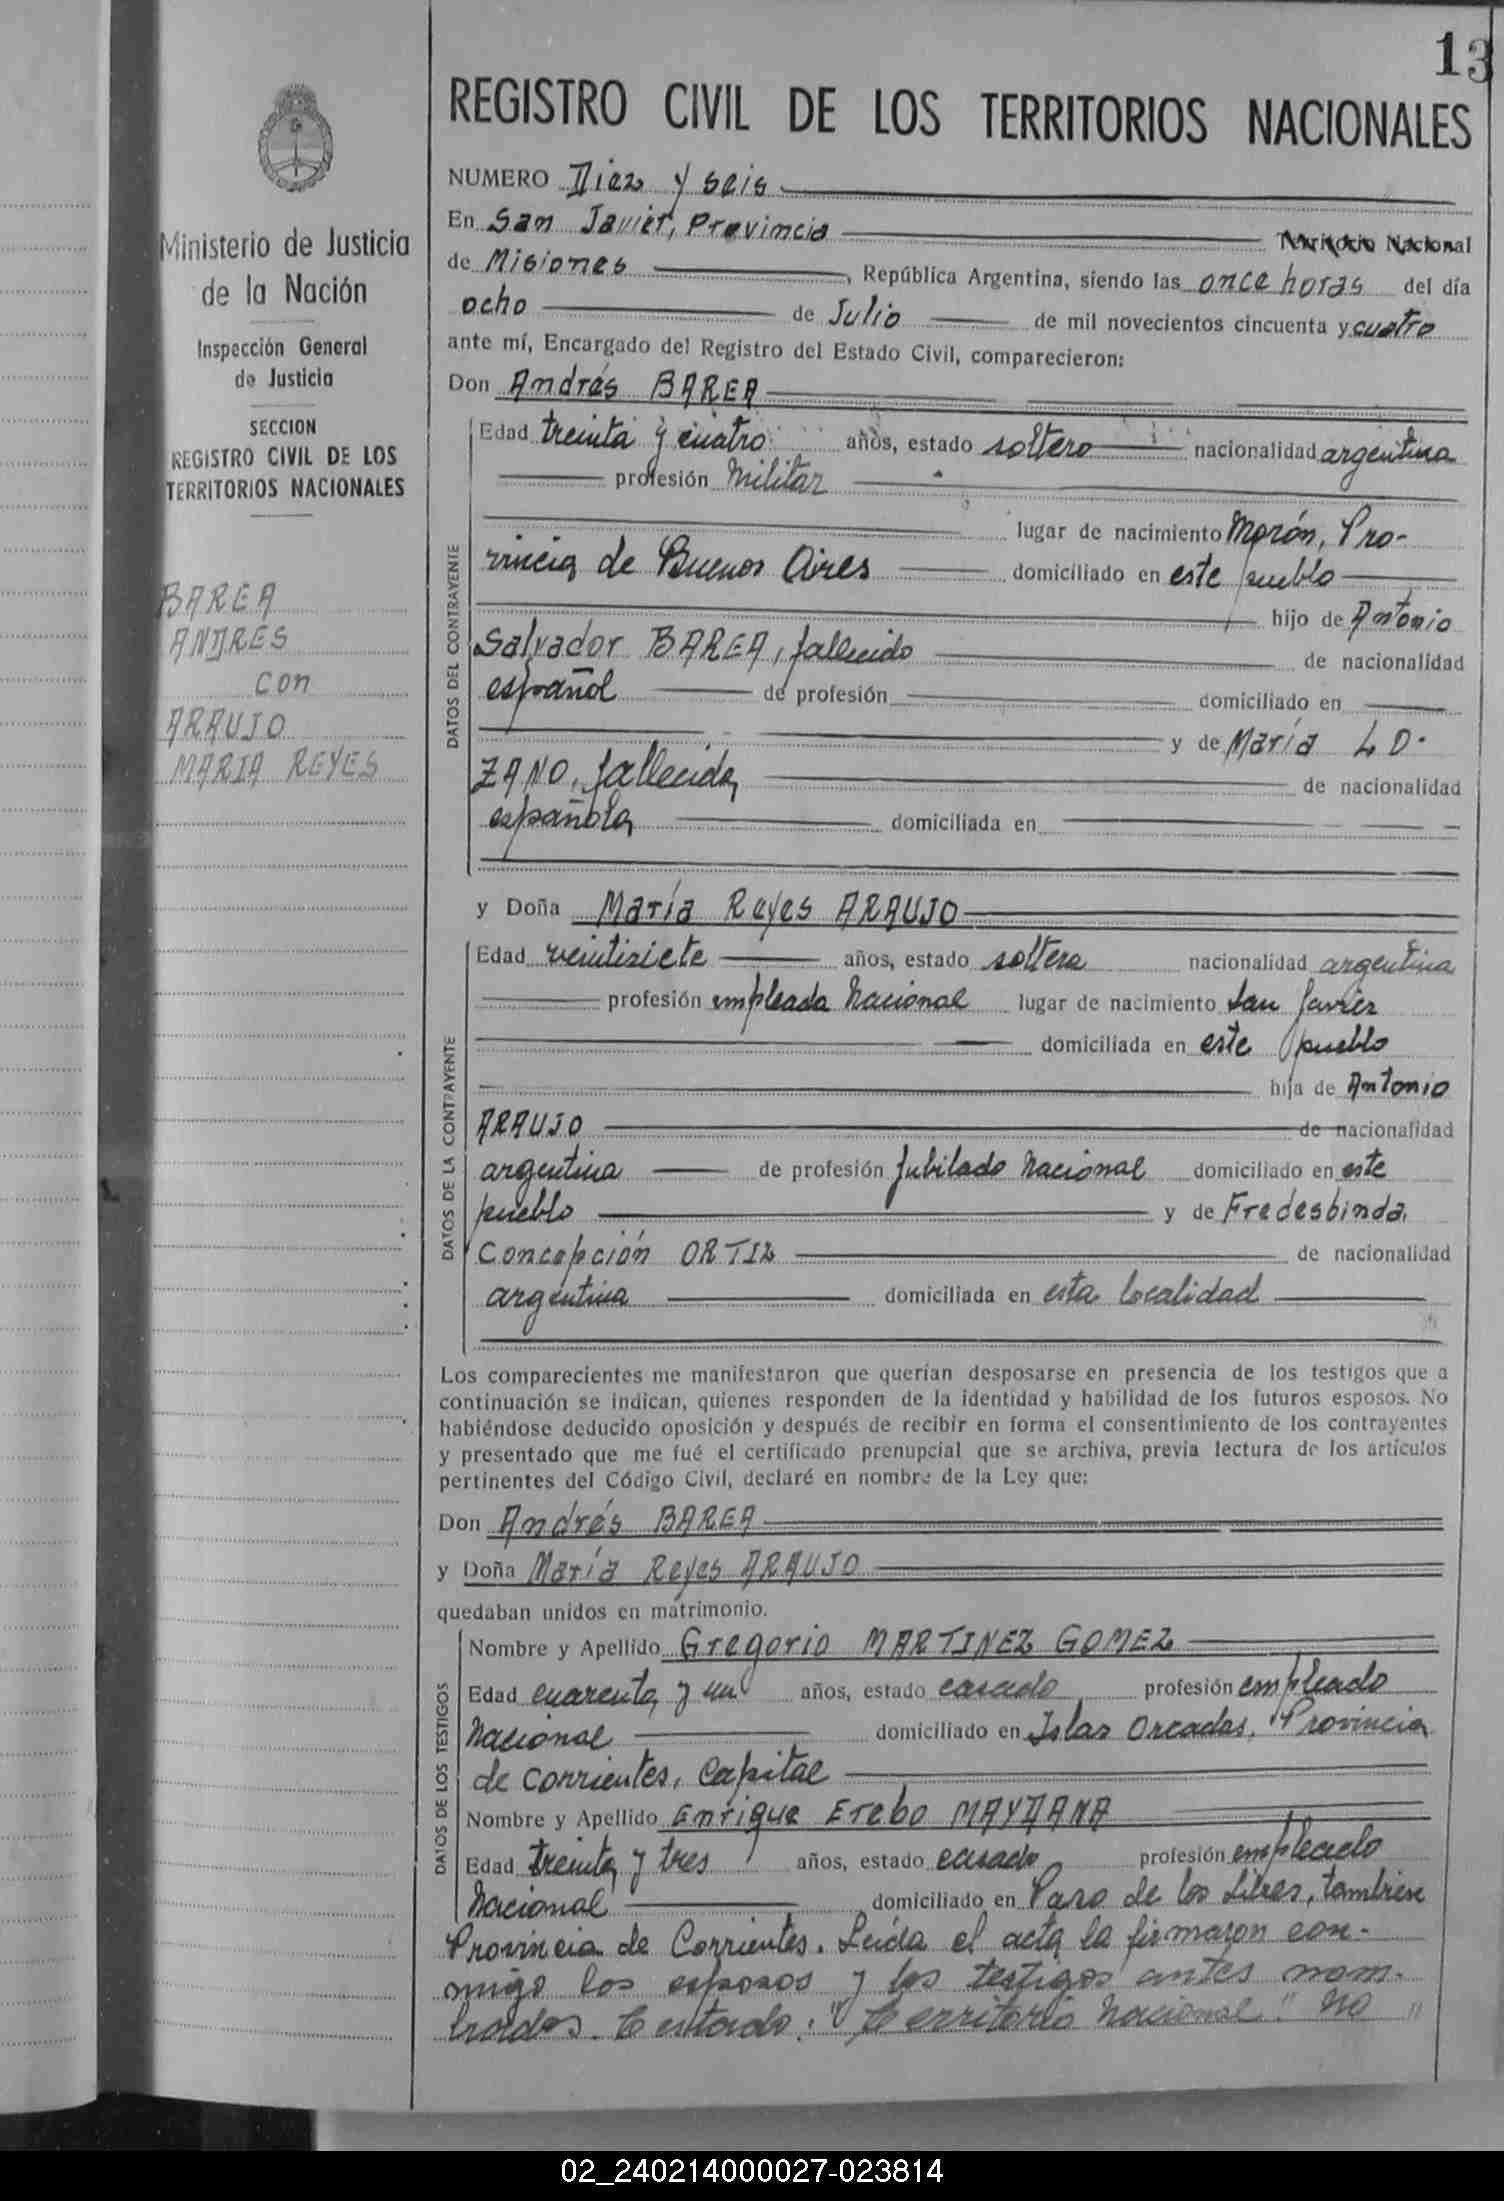 13
REGISTRO CIVIL DE LOS TERRITORIOS NACIONALES
Ministerio de Justicia
de la Nación
Inspección General
de Justicia
SECCION
REGISTRO CIVIL DE LOS
TERRITORIOS NACIONALES
BAREA
ANDRES
con
ARAUJO
MARIA REYES
NUMERO Diez y seis
En San Javier, Provincia Territorio Nacional
de Misiones, República Argentina, siendo las once horas del día
ocho de Julio de mil novecientos cincuenta y cuatro
ante mí, Encargado del Registro del Estado Civil, comparecieron:
Don Andrés BAREA
DATOS DEL CONTRAYENTE
Edad treinta y cuatro años, estado soltero nacionalidad argentina
profesión Militar
lugar de nacimiento Morón, Pro-
vincia de Buenos Aires domiciliado en este pueblo
hijo de Antonio
Salvador BAREA, fallecido de nacionalidad
español de profesión domiciliado en
y de María LO-
ZANO, fallecida de nacionalidad
española domiciliada en
y Doña María Reyes ARAUJO
DATOS DE LA CONTRAYENTE
Edad veintisiete años, estado soltera nacionalidad argentina
profesión empleada Nacional lugar de nacimiento San Javier
domiciliada en este pueblo
hija de Antonio
ARAUJO de nacionalidad
argentina de profesión Jubilado Nacional domiciliado en este
pueblo y de Fredesbinda
Concepción ORTIZ de nacionalidad
argentina domiciliada en esta localidad
Los comparecientes me manifestaron que querían desposarse en presencia de los testigos que a
continuación se indican, quienes responden de la identidad y habilidad de los futuros esposos. No
habiéndose deducido oposición y después de recibir en forma el consentimiento de los contrayentes
y presentado que me fué el certificado prenupcial que se archiva, previa lectura de los artículos
pertinentes del Código Civil, declaré en nombre de la Ley que:
Don Andrés BAREA
y Doña María Reyes ARAUJO
quedaban unidos en matrimonio.
DATOS DE LOS TESTIGOS
Nombre y Apellido Gregorio MARTINEZ GOMEZ
Edad cuarenta y un años, estado casado profesión empleado
Nacional domiciliado en Islas Orcadas, Provincia
de Corrientes, Capital
Nombre y Apellido Enrique Erebo MAYDANA
Edad treinta y tres años, estado casado profesión empleado
Nacional domiciliado en Paso de los Libres, tambien
Provincia de Corrientes. Leída el acta la firmaron con-
migo los esposos y los testigos antes nom-
brados. Testado: "Territorio Nacional" no
02_240214000027-023814